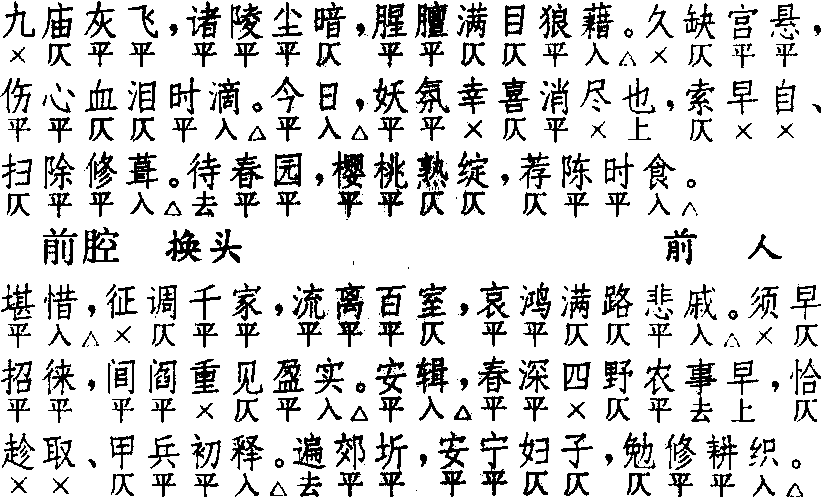 九庙灰飞，诸陵尘暗，腥膻满目狼藉。久缺宫悬，
×仄平平 平平平仄 平平仄仄平入△×仄平平
伤心血泪时滴。今日，妖氛幸喜消尽也，索早自、
平平仄仄平入△平入△平平×仄平×上 仄××
扫除修葺。待春园，樱桃熟绽，荐陈时食。
仄平平入△去平平 平平仄仄 仄平平入△
前腔 换头 前人
堪惜，征调千家，流离百室，哀鸿满路悲戚。须早
平入△×仄平平 平平平仄 平平仄仄平入△×仄
招徕，闾阎重见盈实。安辑，春深四野农事早，恰
平平 平平×仄平入△平入△平平×仄平去上 仄
趁取、甲兵初释。遍郊圻，安宁妇子，勉修耕织。
×× 仄平平入△去平平 平平仄仄 仄平平入△